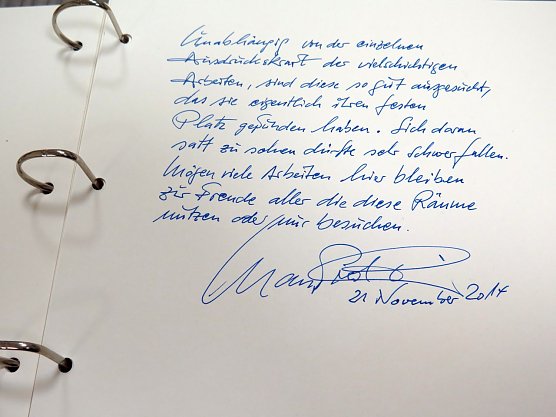 Unabhängig von der einzelnen
Ausdruckskraft der vielschichtigen
Arbeiten, sind diese so gut ausgesucht,
das sie eigentlich ihren festen
Platz gefunden haben. Sich daran
satt zu sehen dürfte sehr schwer fallen.
Mögen viele Arbeiten hier bleiben
zur Freude aller die diese Räume
nutzen oder nur besuchen.
21 November 2014